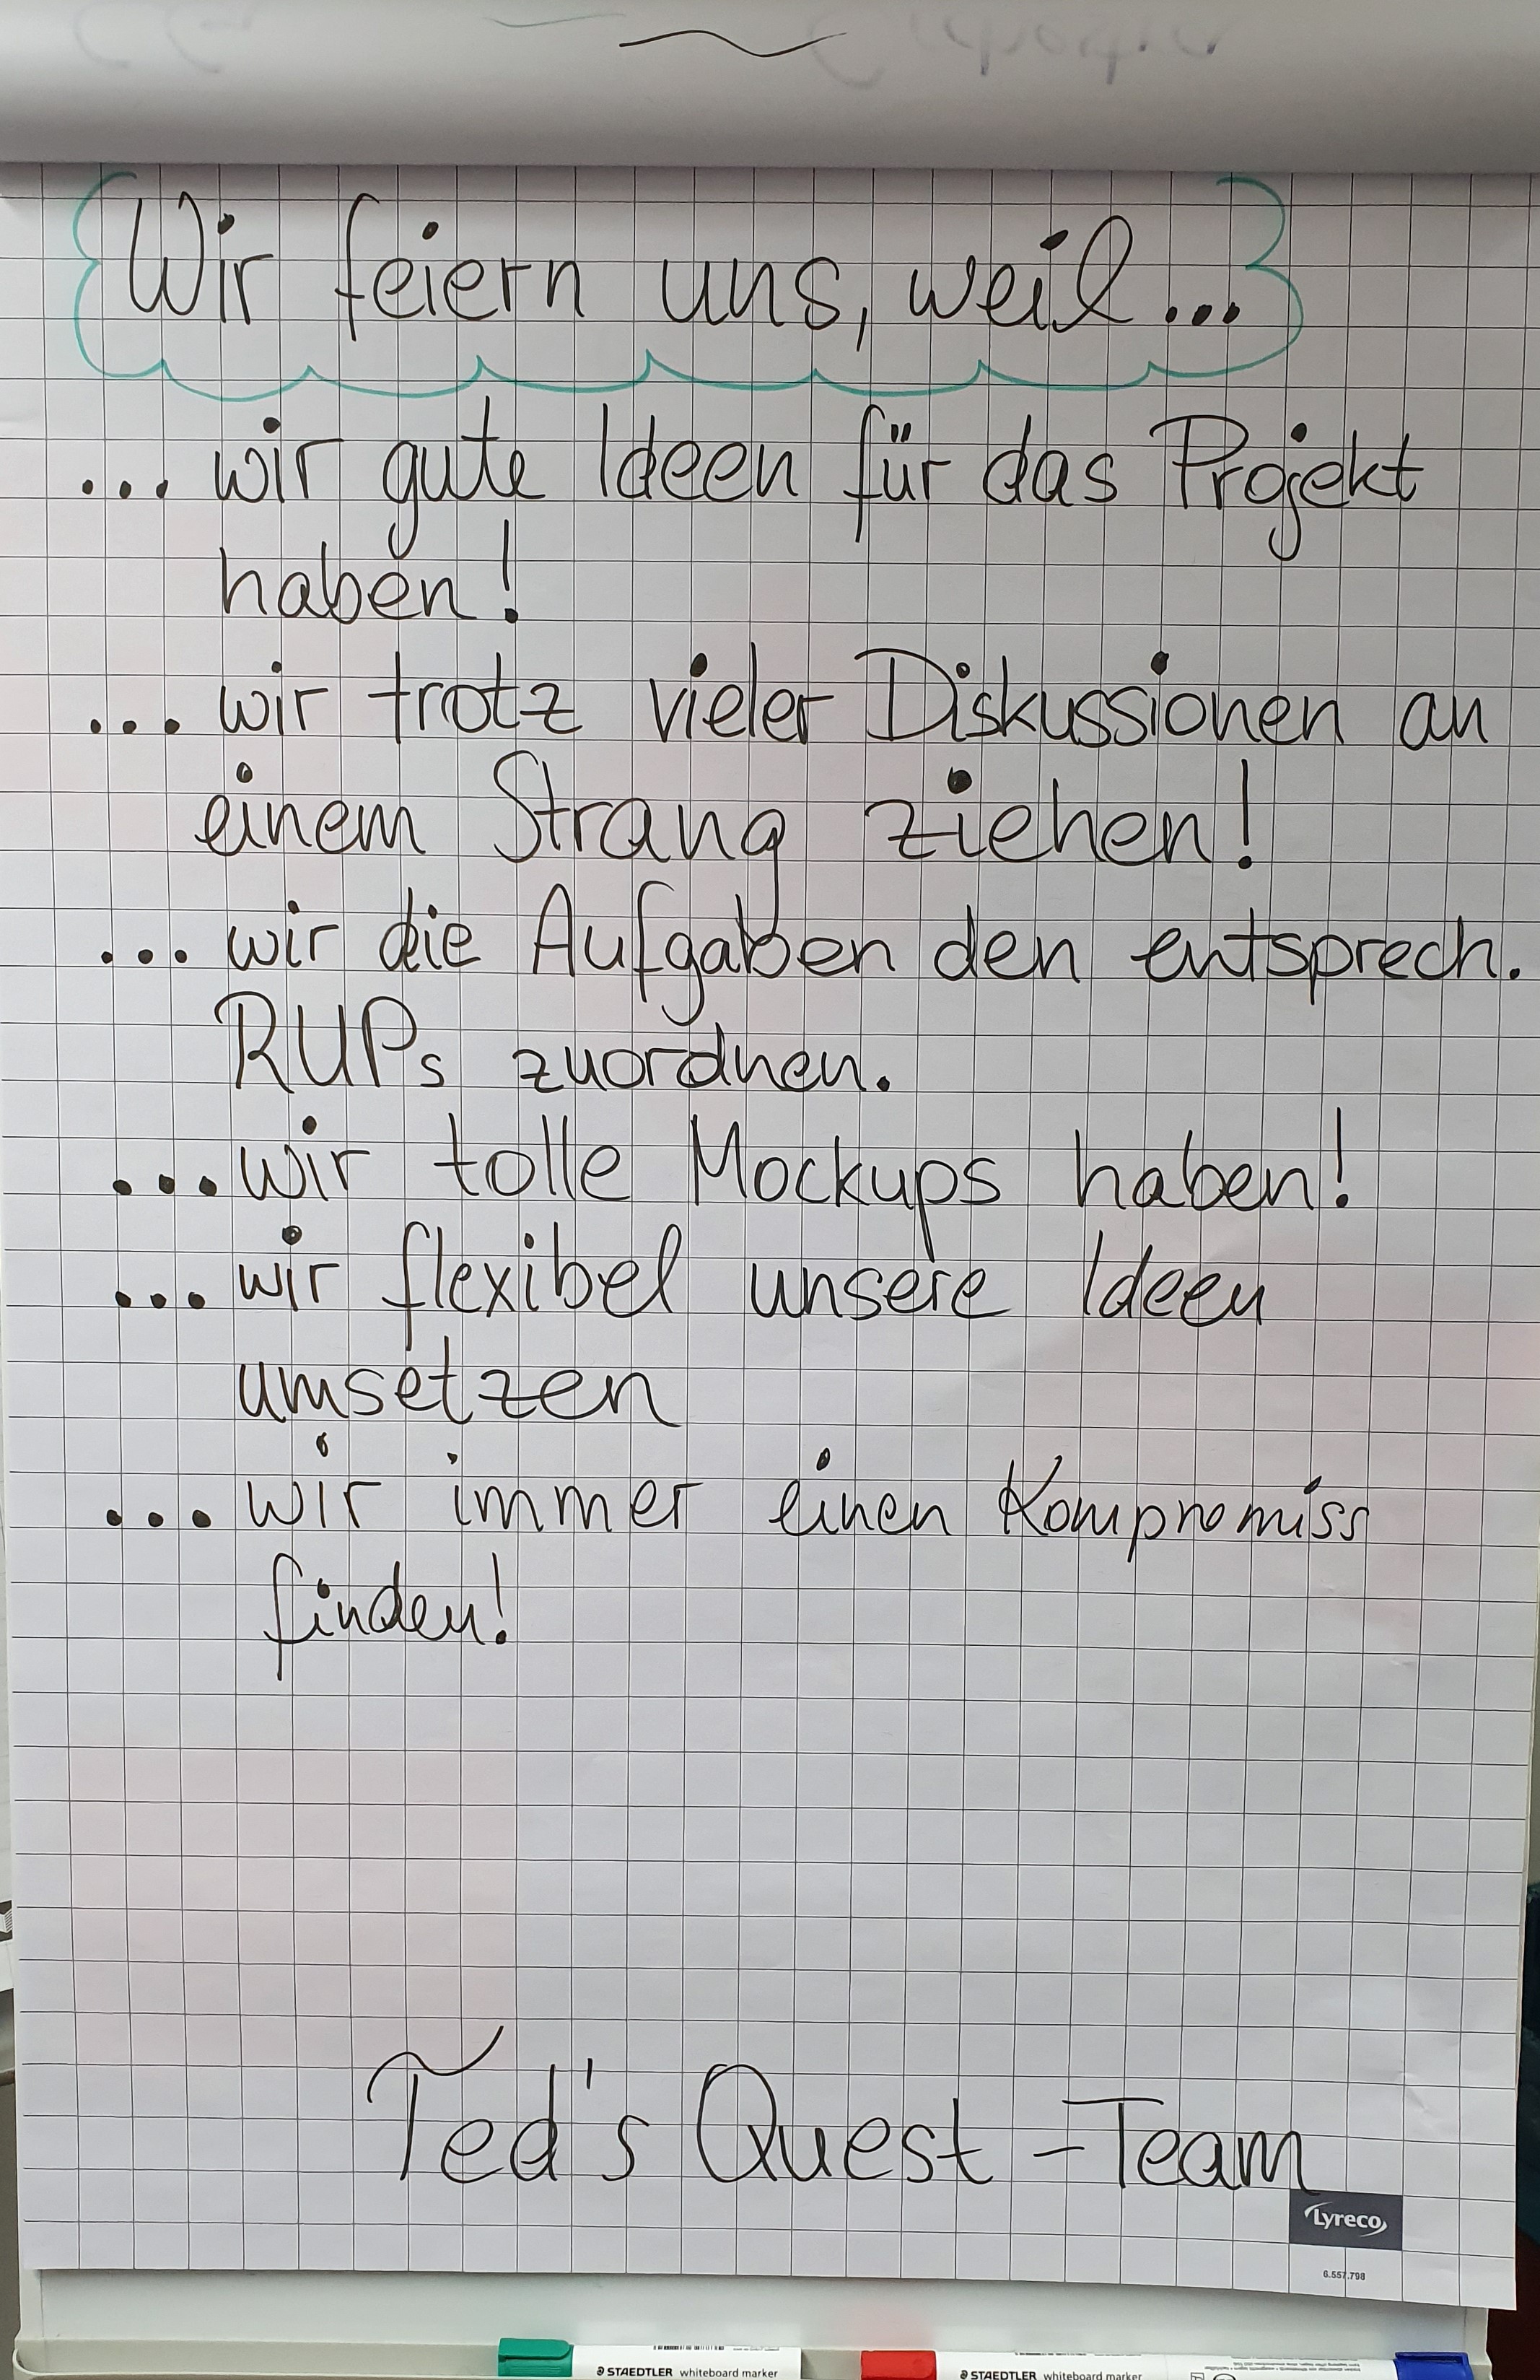 Wir feiern uns, weil...
... wir gute Ideen für das Projekt
haben!
... wir trotz vieler Diskussionen an
einem Strang ziehen!
... wir die Aufgaben den entsprech.
RUPs zuordnen.
... wir tolle Mockups haben!
... wir flexibel unsere Ideen
umsetzen
... wir immer einen Kompromiss
finden!
Ted's Quest - Team
Lyreco
6.557.798
STAEDTLER whiteboard marker
STAEDTLER whiteboard marker